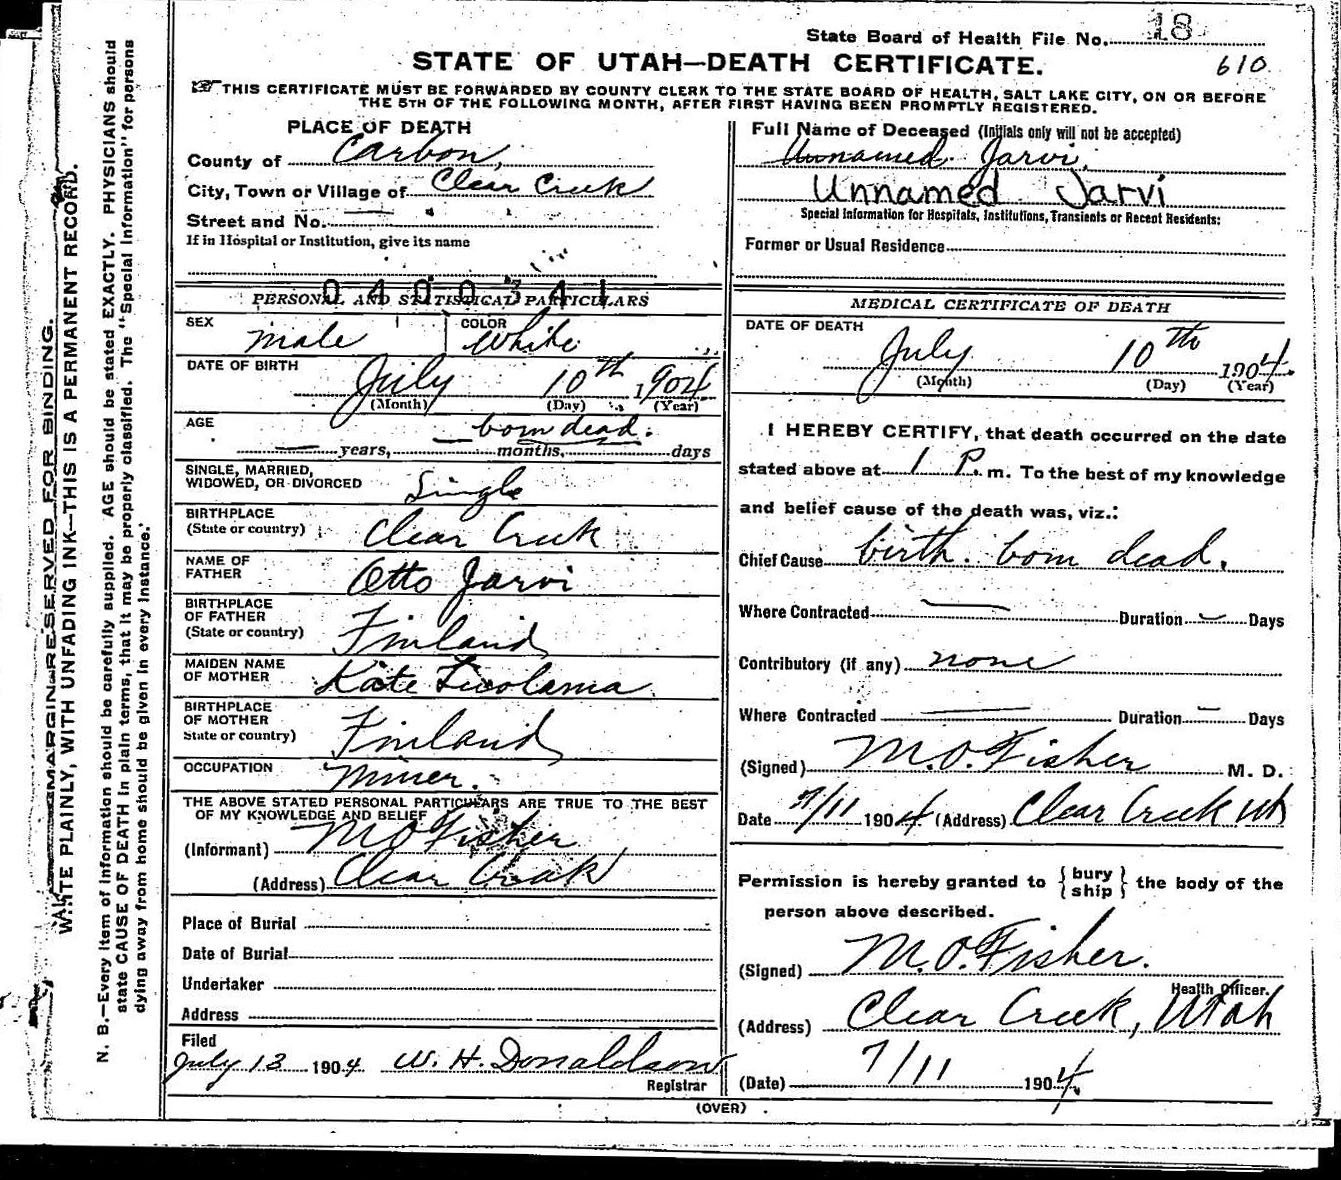 State Board of Health File No. 18
STATE OF UTAH—DEATH CERTIFICATE.
610
THIS CERTIFICATE MUST BE FORWARDED BY COUNTY CLERK TO THE STATE BOARD OF HEALTH, SALT LAKE CITY, ON OR BEFORE
THE 5TH OF THE FOLLOWING MONTH, AFTER FIRST HAVING BEEN PROMPTLY REGISTERED.
MARGIN RESERVED FOR BINDING.
WRITE PLAINLY, WITH UNFADING INK—THIS IS A PERMANENT RECORD.
N. B.—Every item of information should be carefully supplied. AGE should be stated EXACTLY. PHYSICIANS should
state CAUSE OF DEATH in plain terms, that it may be properly classified. The "Special Information" for persons
dying away from home should be given in every instance.
PLACE OF DEATH
County of Carbon,
City, Town or Village of Clear Creek
Street and No.
If in Hospital or Institution, give its name
0400341
PERSONAL AND STATISTICAL PARTICULARS
SEX male COLOR White
DATE OF BIRTH July 10th 1904
(Month) (Day) (Year)
AGE born dead.
years, months, days
SINGLE, MARRIED,
WIDOWED, OR DIVORCED Single
BIRTHPLACE
(State or country) Clear Creek
NAME OF
FATHER Otto Jarvi
BIRTHPLACE
OF FATHER
(State or country) Finland
MAIDEN NAME
OF MOTHER Kate
BIRTHPLACE
OF MOTHER
State or country) Finland
OCCUPATION Miner.
THE ABOVE STATED PERSONAL PARTICULARS ARE TRUE TO THE BEST
OF MY KNOWLEDGE AND BELIEF
(Informant) M O Fisher
(Address) Clear Creek
Place of Burial
Date of Burial
Undertaker
Address
Filed
July 13 1904 W. H. Donaldson
Registrar
Full Name of Deceased (Initials only will not be accepted)
Unnamed Jarvi.
Unnamed Jarvi
Special Information for Hospitals, Institutions, Transients or Recent Residents:
Former or Usual Residence
MEDICAL CERTIFICATE OF DEATH
DATE OF DEATH
July 10th 1904.
(Month) (Day) (Year)
I HEREBY CERTIFY, that death occurred on the date
stated above at 1 P. m. To the best of my knowledge
and belief cause of the death was, viz.:
Chief Cause birth. born dead.
Where Contracted Duration Days
Contributory (if any) none
Where Contracted Duration Days
(Signed) M.O. Fisher M. D.
Date 7/11 1904 (Address) Clear Creek Ut
Permission is hereby granted to { bury ship } the body of the
person above described.
(Signed) M.O. Fisher.
Health Officer.
(Address) Clear Creek, Utah
(Date) 7/11 1904.
(OVER)